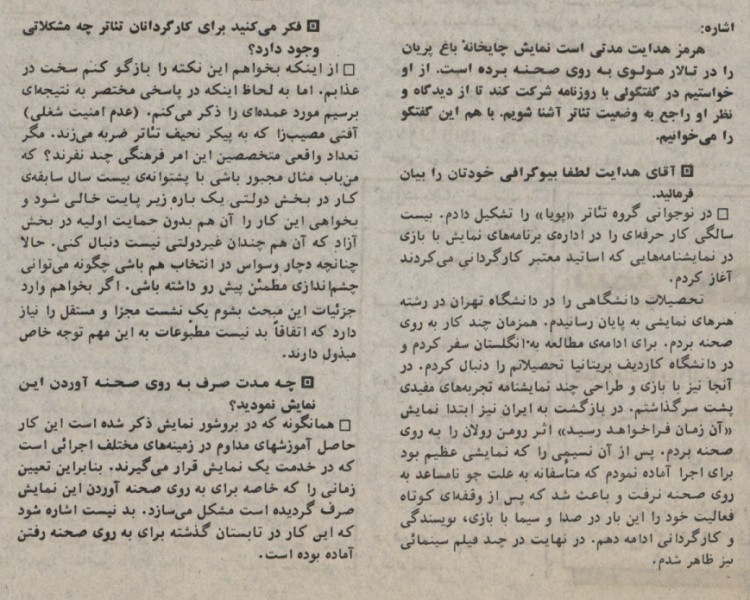 اشاره:
هرمز هدایت مدتی است نمایش چایخانهٔ باغ پریان
را در تالار مولوی به روی صحنه برده است. از او
خواستیم در گفتگوئی با روزنامه شرکت کند تا از دیدگاه و
نظر او راجع به وضعیت تئاتر آشنا شویم. با هم این گفتگو
را می‌خوانیم.
آقای هدایت لطفا بیوگرافی خودتان را بیان
فرمائید.
□ در نوجوانی گروه تئاتر «پویا» را تشکیل دادم. بیست
سالگی کار حرفه‌ای را در اداره‌ی برنامه‌های نمایش با بازی
در نمایشنامه‌هایی که اساتید معتبر کارگردانی می‌کردند
آغاز کردم.
تحصیلات دانشگاهی را در دانشگاه تهران در رشته
هنرهای نمایشی به پایان رسانیدم. همزمان چند کار به روی
صحنه بردم. برای ادامه‌ی مطالعه به انگلستان سفر کردم و
در دانشگاه کاردیف بریتانیا تحصیلاتم را دنبال کردم. در
آنجا نیز با بازی و طراحی چند نمایشنامه تجربه‌های مفیدی
پشت سرگذاشتم. در بازگشت به ایران نیز ابتدا نمایش
«آن زمان فراخواهد رسید» اثر رومن رولان را به روی
صحنه بردم. پس از آن نسیمی را که نمایشی عظیم بود
برای اجرا آماده نمودم که متأسفانه به علت جو نامساعد به
روی صحنه نرفت و باعث شد که پس از وقفه‌ای کوتاه
فعالیت خود را این بار در صدا و سیما با بازی، نویسندگی
و کارگردانی ادامه دهم. در نهایت در چند فیلم سینمائی
نیز ظاهر شدم.
فکر می‌کنید برای کارگردانان تئاتر چه مشکلاتی
وجود دارد؟
□ از اینکه بخواهم این نکته را بازگو کنم سخت در
عذابم. اما به لحاظ اینکه در پاسخی مختصر به نتیجه‌ای
برسیم مورد عمده‌ای را ذکر می‌کنم. (عدم امنیت شغلی)
آفتی مصیب‌زا که به پیکر نحیف تئاتر ضربه می‌زند. مگر
تعداد واقعی متخصصین این امر فرهنگی چند نفرند؟ که
من‌باب مثال مجبور باشی با پشتوانه‌ی بیست سال سابقه‌ی
کار در بخش دولتی یک باره زیر پایت خالی شود و
بخواهی این کار را آن هم بدون حمایت اولیه در بخش
آزاد که آن هم چندان غیردولتی نیست دنبال کنی. حالا
چنانچه دچار وسواس در انتخاب هم باشی چگونه می‌توانی
چشم‌اندازی مطمئن پیش رو داشته باشی. اگر بخواهم وارد
جزئیات این مبحث بشوم یک نشست مجزا و مستقل را نیاز
دارد که اتفاقاً بد نیست مطبوعات به این مهم توجه خاص
مبذول دارند.
چه مدت صرف به روی صحنه آوردن این
نمایش نمودید؟
□ همانگونه که در بروشور نمایش ذکر شده است این کار
حاصل آموزشهای مداوم در زمینه‌های مختلف اجرائی است
که در خدمت یک نمایش قرار می‌گیرند. بنابراین تعیین
زمانی را که خاصه برای به روی صحنه آوردن این نمایش
صرف گردیده است مشکل می‌سازد. بد نیست اشاره شود
که این کار در تابستان گذشته برای به روی صحنه رفتن
آماده بوده است.